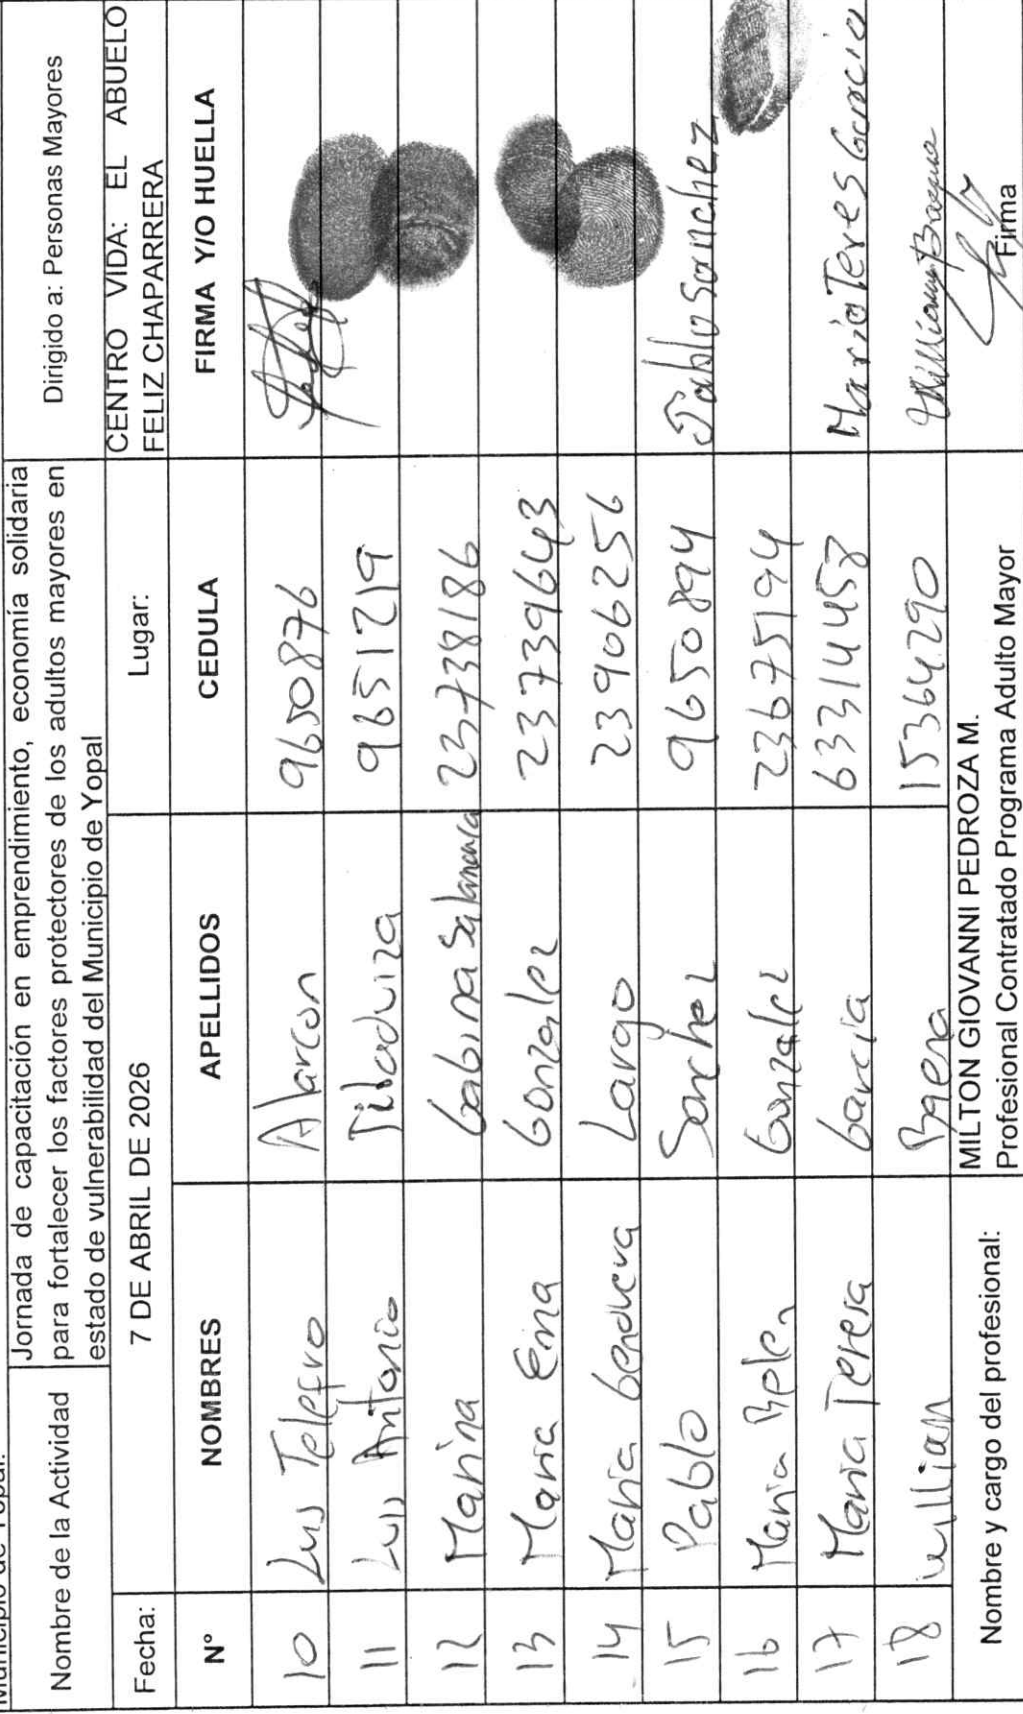 Municipio de Yopal.
Nombre de la Actividad
Jornada de capacitación en emprendimiento, economía solidaria
para fortalecer los factores protectores de los adultos mayores en
estado de vulnerabilidad del Municipio de Yopal
Dirigido a: Personas Mayores
Fecha: 7 DE ABRIL DE 2026 Lugar: CENTRO VIDA: EL ABUELO
FELIZ CHAPARRERA
N° NOMBRES APELLIDOS CEDULA FIRMA Y/O HUELLA
10 Luis Telefro Alarcon 9650876
11 Luis Antonio 9651219
12 Marina Gabina Salamanca 23738186
13 Maria Ema Gonzalez 23739643
14 Maria Largo 23906256
15 Pablo Sanchez 9650894 Pablo Sanchez
16 Maria Belen Gonzalez 23675194
17 Maria Teresa Garcia 63314458 Maria Teres Garcia
18 willian Baena 15364290
Nombre y cargo del profesional:
MILTON GIOVANNI PEDROZA M.
Profesional Contratado Programa Adulto Mayor
Firma